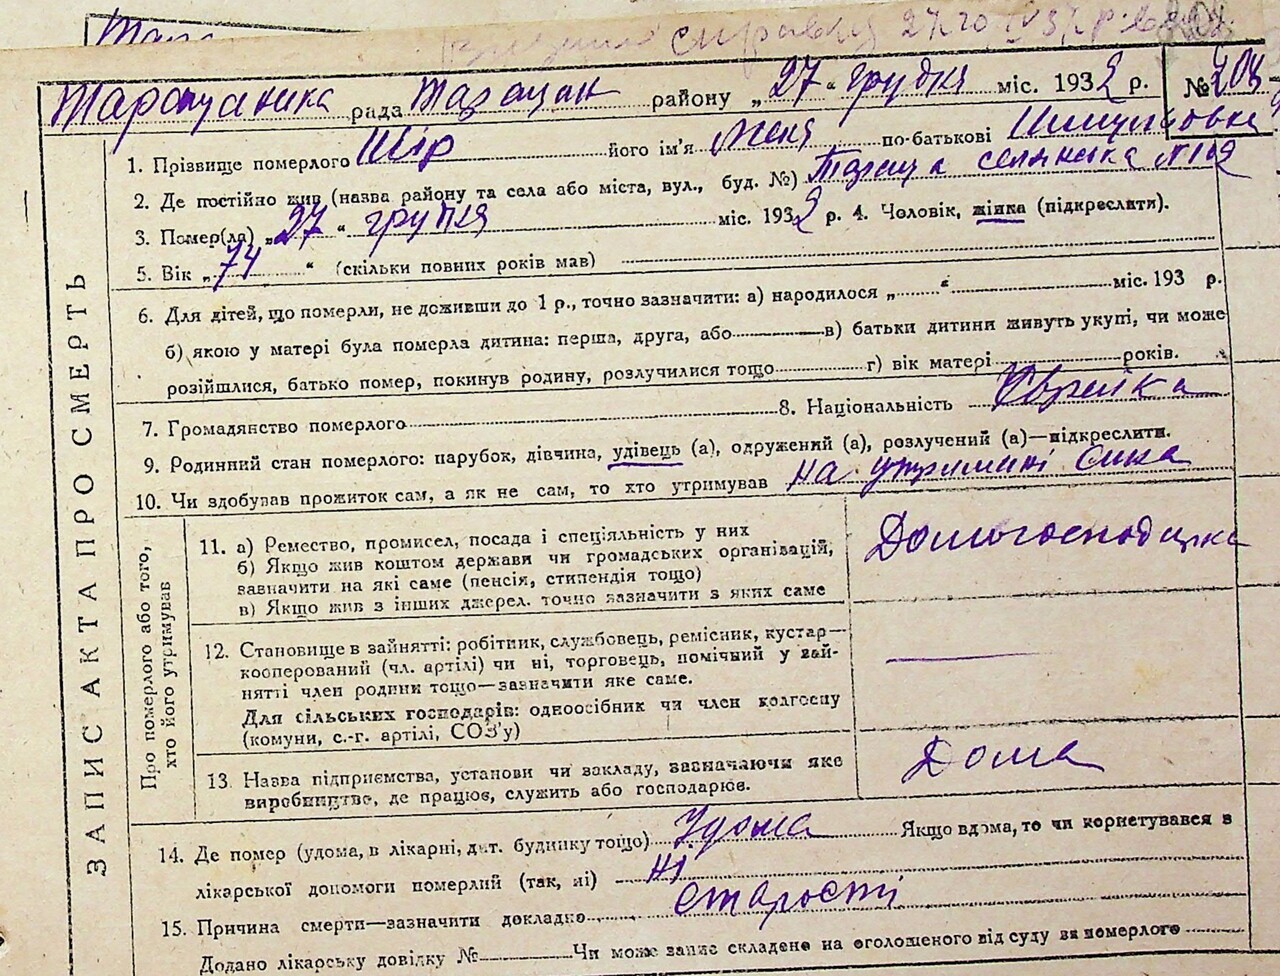 справку
Таращанська рада Таращан району „27“ грудня міс. 1932 р. № 204
1. Прізвище померлого Шір його ім'я Меня по-батькові
2. Де постійно жив (назва району та села або міста, вул., буд. №) Тараща селянська № 102
3. Помер(ла) „27“ грудня міс. 1932 р. 4. Чоловік, жінка (підкреслити).
5. Вік „74“ (скільки повних років мав)
6. Для дітей, що померли, не доживши до 1 р., точно зазначити: а) народилося „ “ міс. 193 р.
б) якою у матері була померла дитина: перша, друга, або в) батьки дитини живуть укупі, чи може
розійшлися, батько помер, покинув родину, розлучилися тощо г) вік матері років.
7. Громадянство померлого 8. Національність Єврейка
9. Родинний стан померлого: парубок, дівчина, удівець (а), одружений (а), розлучений (а)—підкреслити.
10. Чи здобував прожиток сам, а як не сам, то хто утримував на утриманні сина
ЗАПИС АКТА ПРО СМЕРТЬ
Про померлого або того,
хто його утримував
11. а) Ремество, промисел, посада і спеціяльність у них
б) Якщо жив коштом держави чи громадських організацій,
зазначити на які саме (пенсія, стипендія тощо)
в) Якщо жив з інших джерел. точно зазначити з яких саме
Домогосподарка
12. Становище в зайнятті: робітник, службовець, ремісник, кустар—
кооперований (чл. артілі) чи ні, торговець, помічний у зай-
нятті член родини тощо—зазначити яке саме.
Для сільських господарів: одноосібник чи член колгоспу
(комуни, с.-г. артілі, СОЗ'у)
13. Назва підприємства, установи чи закладу, зазначаючи яке
виробництво, де працює, служить або господарює.
Дома
14. Де помер (удома, в лікарні, дит. будинку тощо) Удома Якщо вдома, то чи користувався в
лікарської допомоги померлий (так, ні) ні
15. Причина смерти—зазначити докладно старості
Додано лікарську довідку № Чи може запис складено на оголошеного від суду за померлого